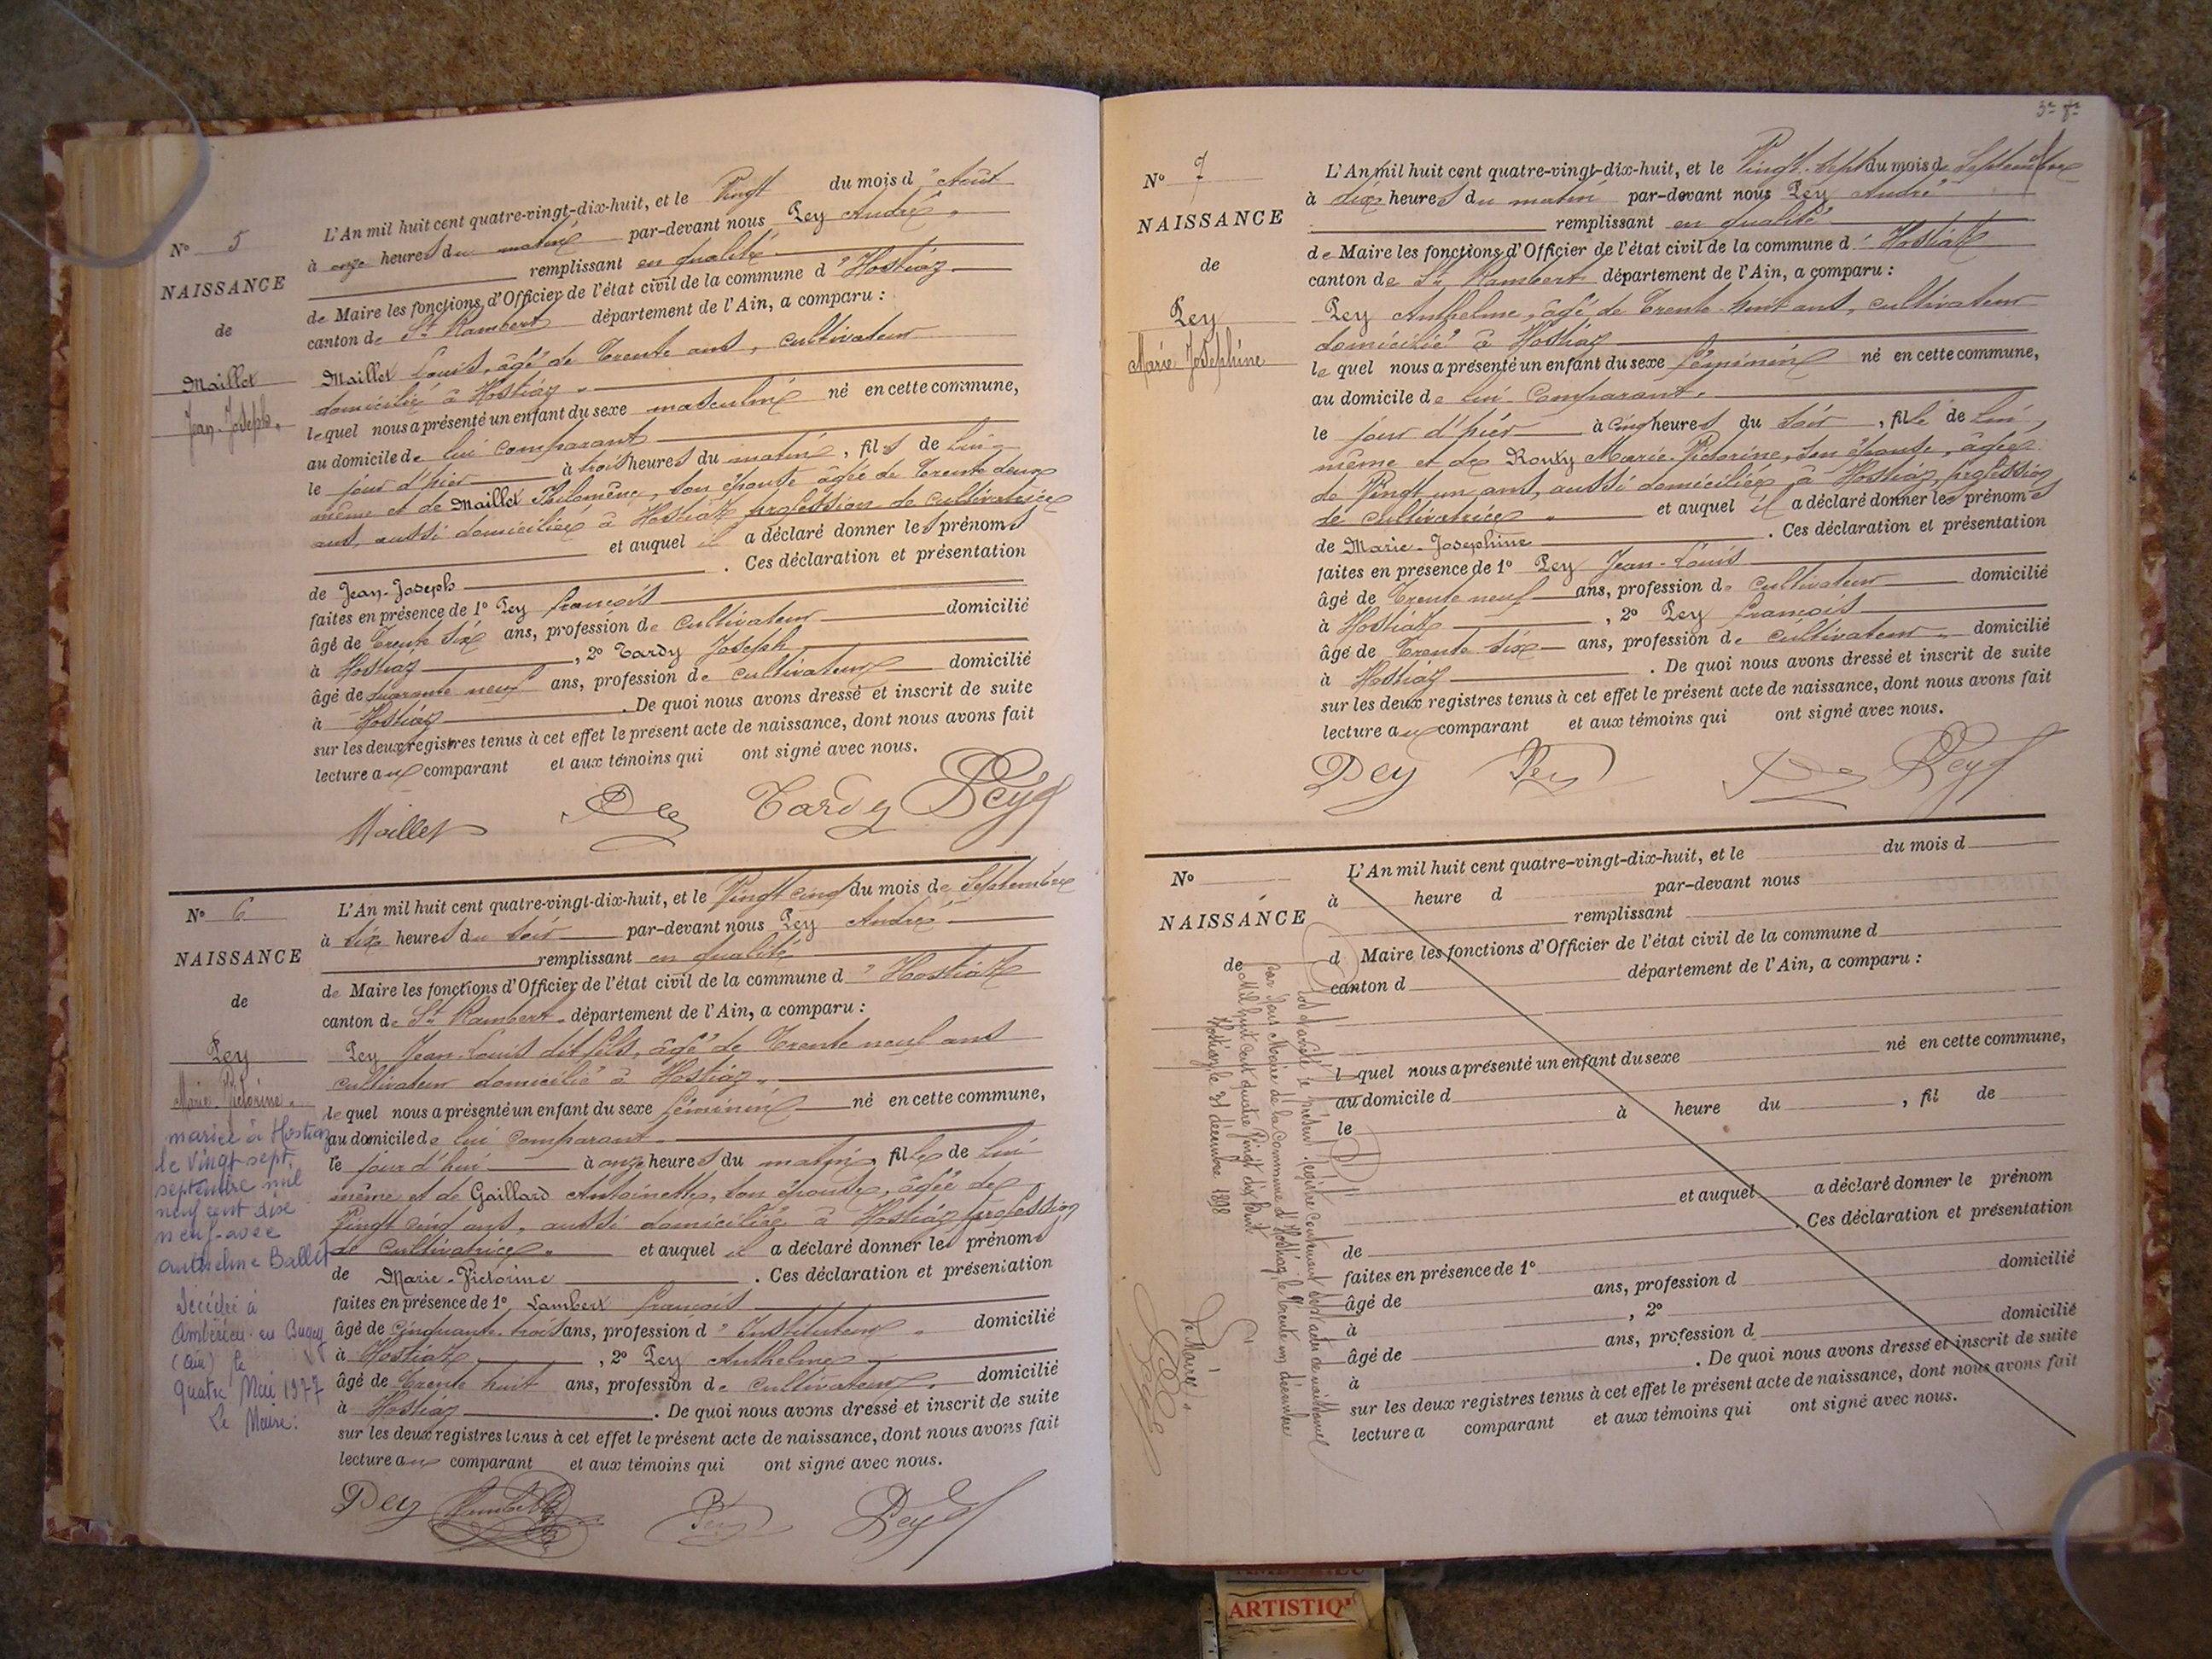 N° 5
NAISSANCE
de
Maillet
Jean-Joseph.
L'An mil huit cent quatre-vingt-dix-huit, et le Vingt du mois d'Août
à onze heures du matin par-devant nous Pey André.
remplissant en qualité
de Maire les fonctions d'Officier de l'état civil de la commune d'Hostiaz
canton de St Rambert département de l'Ain, a comparu :
Maillet Louis, âgé de Trente ans, cultivateur
domicilié à Hostiaz.
lequel nous a présenté un enfant du sexe masculin né en cette commune,
au domicile de lui comparant
le jour d'hier à trois heures du matin, fils de lui
même et de Maillet Philomène, son épouse âgée de Trente deux
ans, aussi domiciliée à Hostiaz profession de cultivatrice
et auquel il a déclaré donner les prénoms
de Jean-Joseph . Ces déclaration et présentation
faites en présence de 1° Pey François
âgé de Trente six ans, profession de cultivateur domicilié
à Hostiaz , 2° Tardy Joseph
âgé de quarante neuf ans, profession de cultivateur domicilié
à Hostiaz . De quoi nous avons dressé et inscrit de suite
sur les deux registres tenus à cet effet le présent acte de naissance, dont nous avons fait
lecture au comparant et aux témoins qui ont signé avec nous.
Maillet Tardy Pey
N° 6
NAISSANCE
de
Pey
Marie-Victorine.
mariée à Hostiaz
le vingt-sept
septembre mil
neuf cent dix
neuf avec
Anthelme Ballet
Décédée à
Ambérieu-en-Bugey
(Ain) le
quatre Mai 1977
Le Maire :
L'An mil huit cent quatre-vingt-dix-huit, et le Vingt cinq du mois de Septembre
à six heures du soir par-devant nous Pey André
remplissant en qualité
de Maire les fonctions d'Officier de l'état civil de la commune d'Hostiaz
canton de St Rambert département de l'Ain, a comparu :
Pey Jean-Louis dit fils, âgé de Trente neuf ans
cultivateur domicilié à Hostiaz.
lequel nous a présenté un enfant du sexe féminin né en cette commune,
au domicile de lui comparant
le jour d'hui à onze heures du matin, fille de lui
même et de Gaillard Antoinette, son épouse, âgée de
Vingt cinq ans, aussi domiciliée à Hostiaz profession
de cultivatrice. et auquel il a déclaré donner les prénoms
de Marie-Victorine . Ces déclaration et présentation
faites en présence de 1° Lambert François
âgé de cinquante-trois ans, profession d'Instituteur domicilié
à Hostiaz , 2° Pey Anthelme
âgé de Trente huit ans, profession de cultivateur domicilié
à Hostiaz . De quoi nous avons dressé et inscrit de suite
sur les deux registres tenus à cet effet le présent acte de naissance, dont nous avons fait
lecture au comparant et aux témoins qui ont signé avec nous.
Pey Lambert Pey Pey
N° 7
NAISSANCE
de
Pey
Marie-Joséphine
L'An mil huit cent quatre-vingt-dix-huit, et le Vingt-sept du mois de Septembre
à dix heures du matin par-devant nous Pey André
remplissant en qualité
de Maire les fonctions d'Officier de l'état civil de la commune d'Hostiaz
canton de St Rambert département de l'Ain, a comparu :
Pey Anthelme, âgé de Trente-huit ans, cultivateur
domicilié à Hostiaz
lequel nous a présenté un enfant du sexe féminin né en cette commune,
au domicile de lui comparant.
le jour d'hier à cinq heures du soir , fille de lui
même et de Rouxy Marie-Victorine, son épouse, âgée
de Vingt un ans, aussi domiciliée à Hostiaz, profession
de cultivatrice et auquel il a déclaré donner les prénoms
de Marie-Joséphine . Ces déclaration et présentation
faites en présence de 1° Pey Jean-Louis
âgé de Trente neuf ans, profession de cultivateur domicilié
à Hostiaz , 2° Pey François
âgé de Trente six ans, profession de cultivateur domicilié
à Hostiaz . De quoi nous avons dressé et inscrit de suite
sur les deux registres tenus à cet effet le présent acte de naissance, dont nous avons fait
lecture au comparant et aux témoins qui ont signé avec nous.
Pey Pey Pey
N°
NAISSANCE
de
L'An mil huit cent quatre-vingt-dix-huit, et le du mois d
à heure d par-devant nous
remplissant
d Maire les fonctions d'Officier de l'état civil de la commune d
canton d département de l'Ain, a comparu :
l quel nous a présenté un enfant du sexe né en cette commune,
au domicile d
le à heure du , fil de
et auquel a déclaré donner le prénom
de . Ces déclaration et présentation
faites en présence de 1°
âgé de ans, profession d domicilié
à , 2°
âgé de ans, profession d domicilié
à . De quoi nous avons dressé et inscrit de suite
sur les deux registres tenus à cet effet le présent acte de naissance, dont nous avons fait
lecture a comparant et aux témoins qui ont signé avec nous.
Clos et arrêté le présent registre contenant sept actes de naissance
par nous Maire de la commune d'Hostiaz, le trente un décembre
mil huit cent quatre vingt dix huit
Hostiaz le 31 décembre 1898
Le Maire
ARTISTIQ